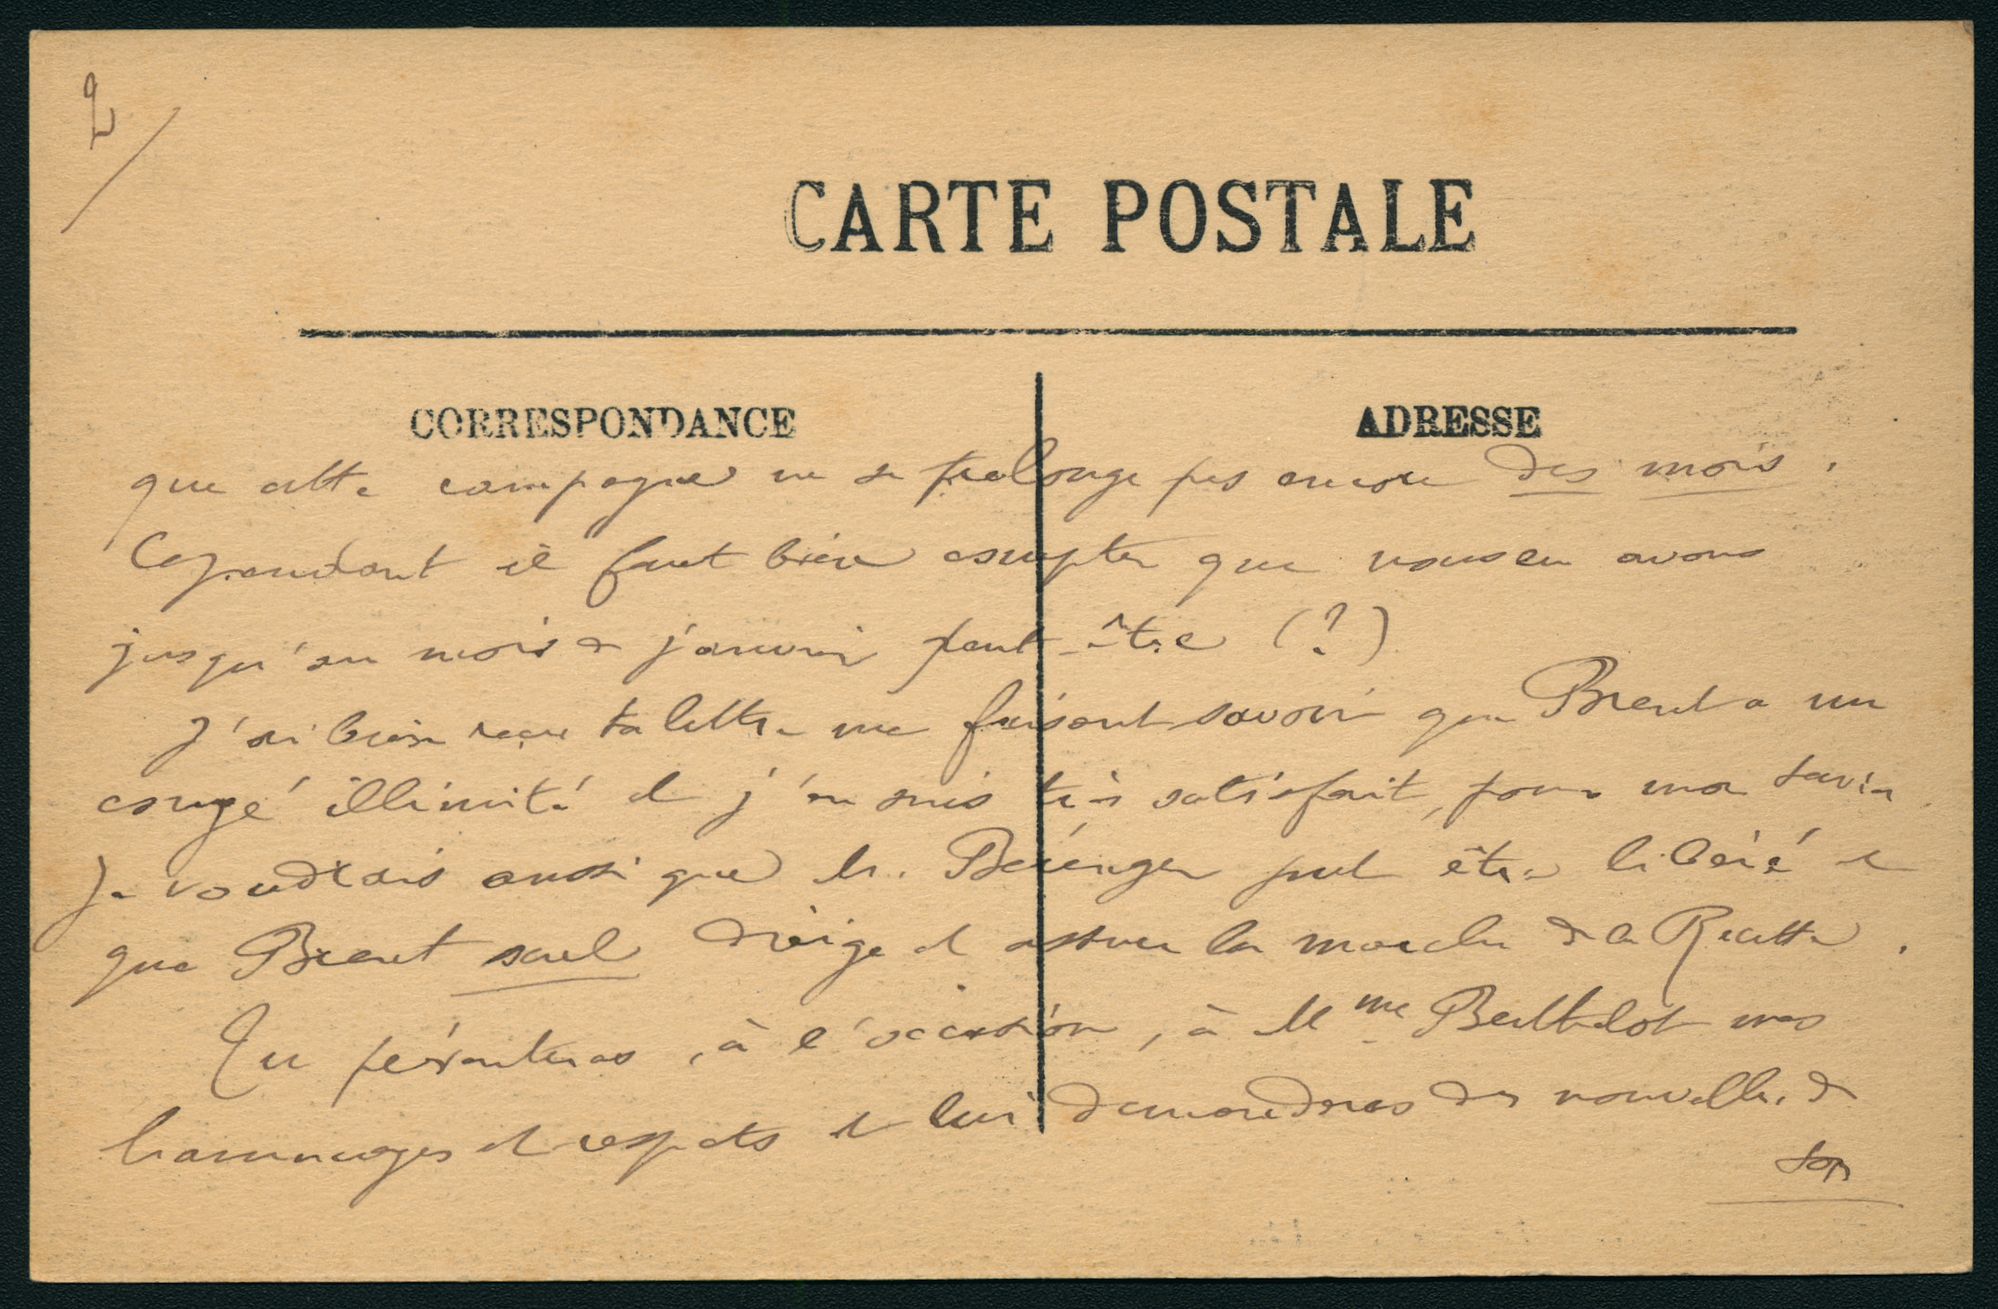 2/
CARTE POSTALE
CORRESPONDANCE
ADRESSE
que cette campagne ne se prolonge pas encore des mois.
Cependant il faut bien compter que nous en avons
jusqu'au mois de janvier peut-être (?)
J'ai bien reçu ta lettre me faisant savoir que Breut a un
congé illimité et j'en suis très satisfait, pour ma
Je voudrais aussi que Mr. Bérenger put être libéré et
que Breut seul dirige et assure la marche de la Recette.
Tu présenteras, à l'occasion, à Mme Berthelot mes
hommages et respects et lui demanderas des nouvelles de
son